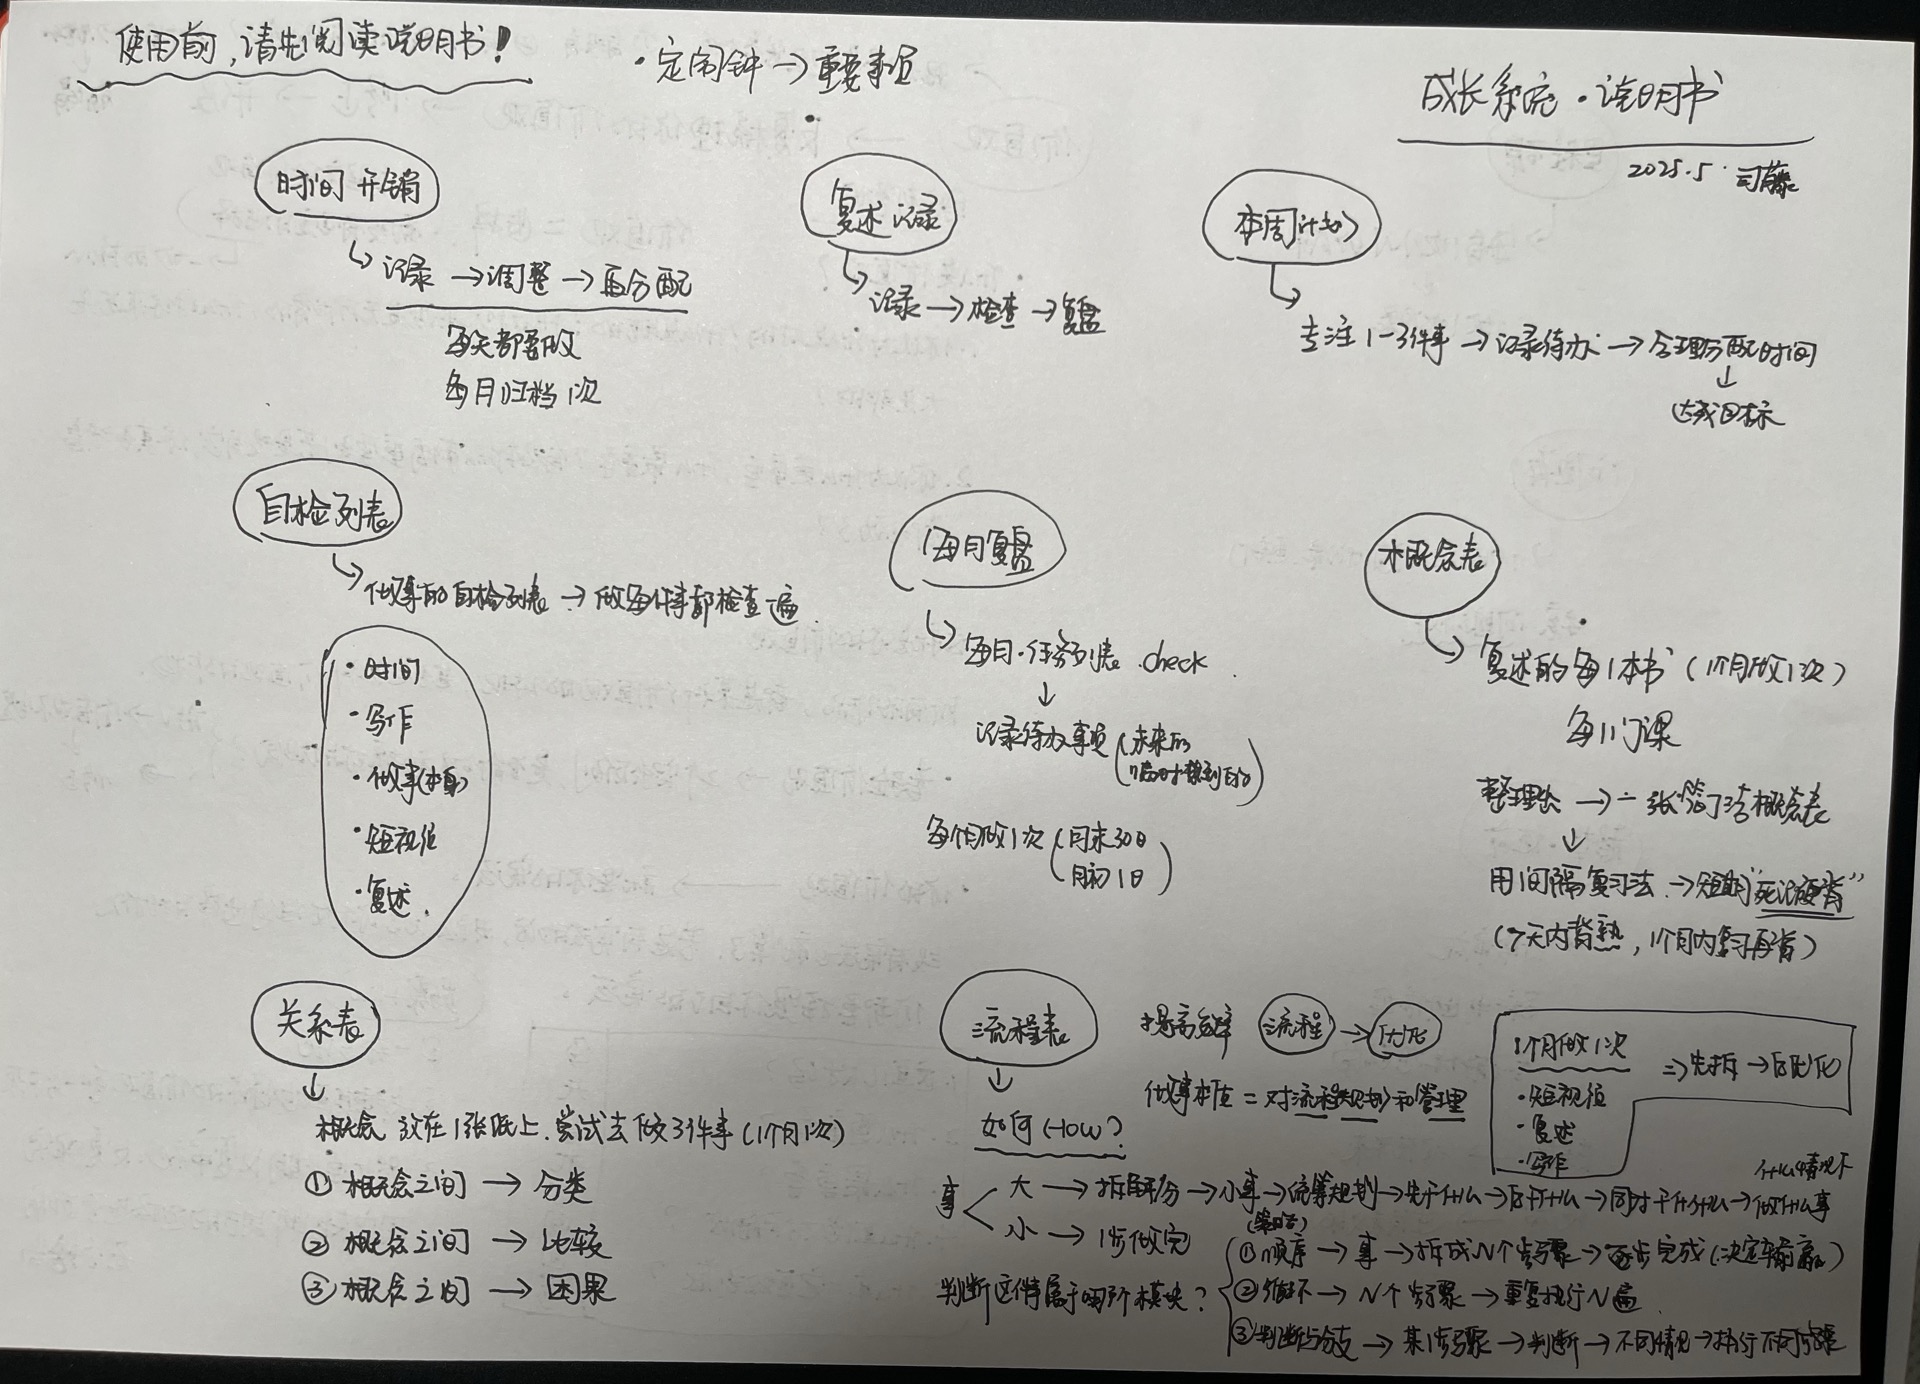 使用前,请先阅读说明书!
·定闹钟→重要事项
成长系统·说明书
2025.5·司藤
时间开销
记录→调整→再分配
每天都要做
每月归档1次
复述记录
记录→检查→复盘
本周计划
专注1-3件事→记录待办→合理分配时间
↓
达成目标
自检列表
做事的自检列表→做每件事都检查一遍
·时间
·写作
·做事(本身)
·短视频
·复述
每月复盘
每月·任务列表·check
↓
记录待办事项(未来的
临时想到的)
每个月做1次(月末30日
月初1日)
概念表
复述的每1本书(1个月做1次)
每1门课
整理出→一张"答丁"清概念表
↓
用间隔复习法→短期"死记硬背"
(7天内背熟,1个月内复习再背)
关系表
↓
概念放在1张纸上,尝试去做3件事(1个月1次)
①概念之间→分类
②概念之间→比较
③概念之间→因果
流程表
↓
如何(How?)
提高效率 流程→优化
做事本质=对流程规划和管理
1个月做1次
·短视频
·复述
·写作
⇒先拆→后优化
事
大→拆解/分→小事→统筹规划→先干什么→后干什么→同时干什么→做什么事
什么情况下
(策略)
小→1步做完
判断这件属于哪个模块?
①顺序→事→拆成N个步骤→逐步完成(决定输赢)
②循环→N个步骤→重复执行N遍
③判断与分支→某1步骤→判断→不同情况→执行不同步骤